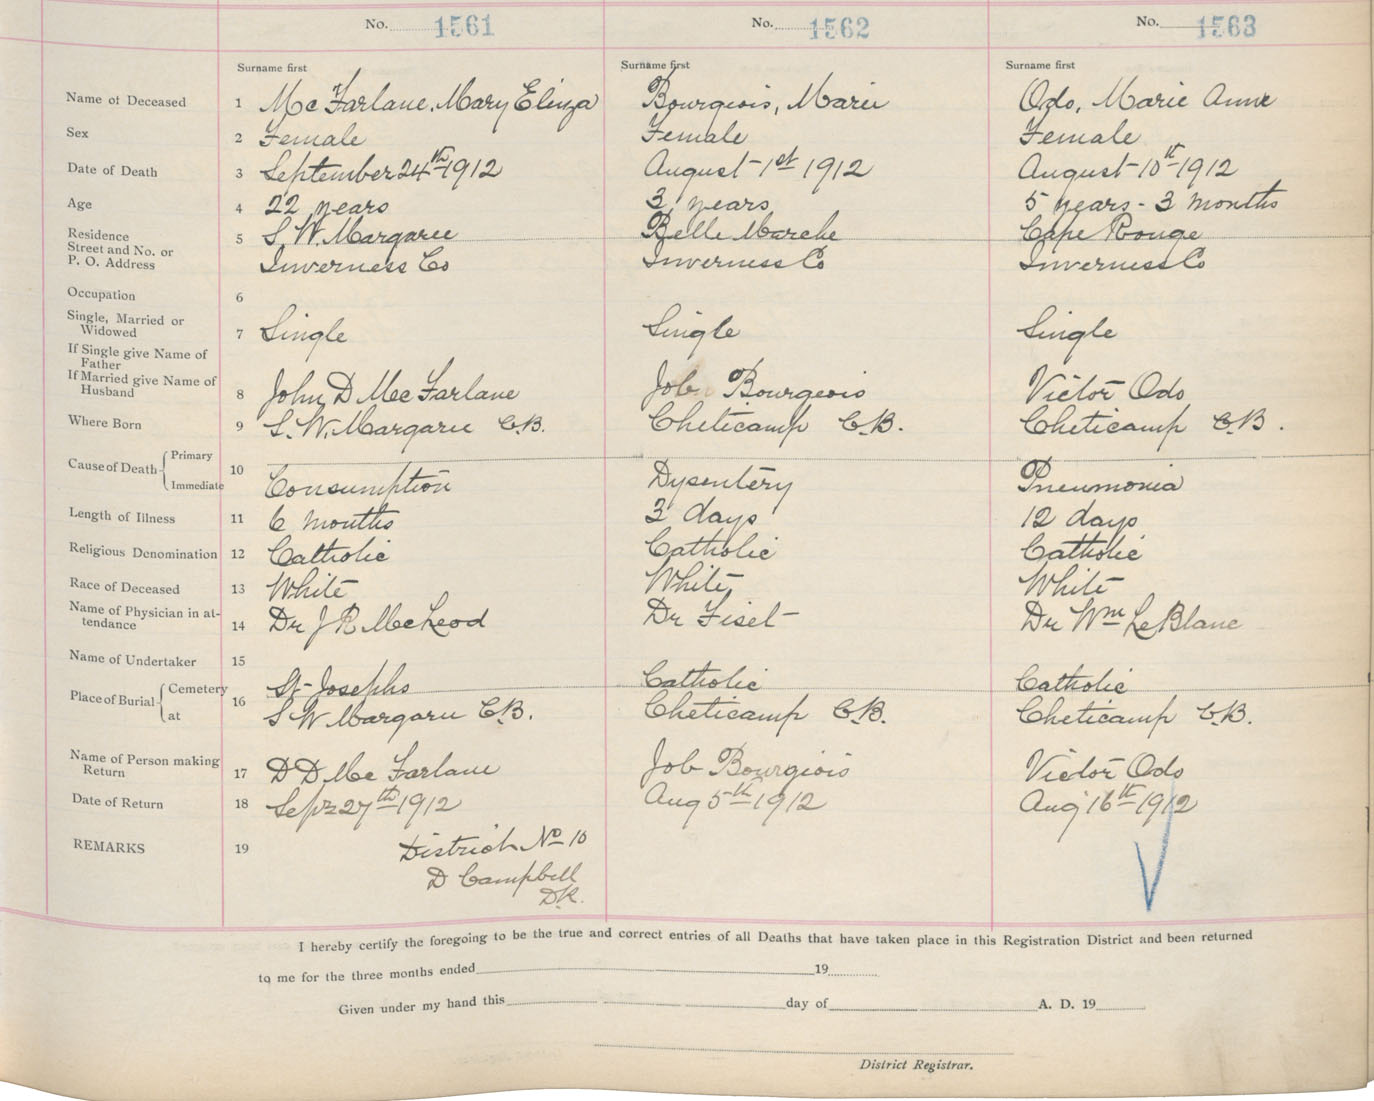 No. 1561 No. 1562 No. 1563
Surname first Surname first Surname first
Name of Deceased 1 McFarlane, Mary Eliza Bourgeois, Marie Odo, Marie Anne
Sex 2 Female Female Female
Date of Death 3 September 24th 1912 August 1st 1912 August 10th 1912
Age 4 22 years 3 years 5 years - 3 months
Residence 5 S. W. Margaree Belle Marche Cape Rouge
Street and No. or
P. O. Address Inverness Co Inverness Co Inverness Co
Occupation 6
Single, Married or
Widowed 7 Single Single Single
If Single give Name of
Father
If Married give Name of
Husband 8 John D McFarlane Job Bourgeois Victor Odo
Where Born 9 S. W. Margaree C.B. Cheticamp C.B. Cheticamp C.B.
Cause of Death Primary
Immediate 10 Consumption Dysentery Pneumonia
Length of Illness 11 6 months 3 days 12 days
Religious Denomination 12 Catholic Catholic Catholic
Race of Deceased 13 White White White
Name of Physician in at-
tendance 14 Dr J R McLeod Dr Fiset Dr Wm LeBlanc
Name of Undertaker 15
Place of Burial Cemetery 16 St Josephs Catholic Catholic
at S W Margaree C.B. Cheticamp C.B. Cheticamp C.B.
Name of Person making
Return 17 D D McFarlane Job Bourgeois Victor Odo
Date of Return 18 Sept 27th 1912 Aug 5th 1912 Aug 16th 1912
REMARKS 19 District No 10
D Campbell
D.R.
I hereby certify the foregoing to be the true and correct entries of all Deaths that have taken place in this Registration District and been returned
to me for the three months ended 19
Given under my hand this day of A. D. 19
District Registrar.